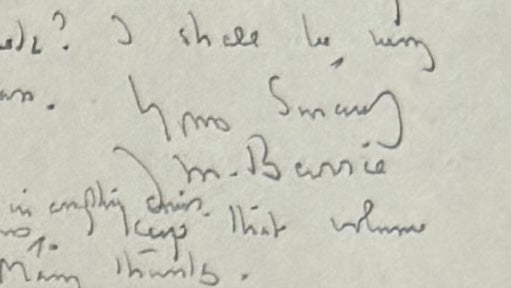 ? I shall be very
Yours Sincerely
J M. Barrie
in anything
Keep that volume
Many thanks.